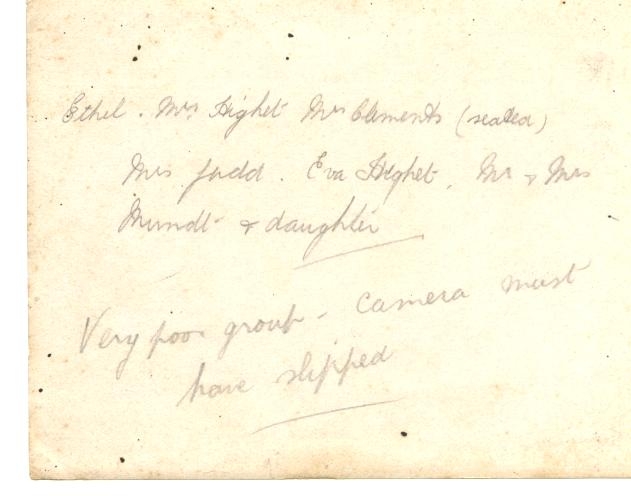 Ethel. Mrs Highet Mrs Clements (seated)
Mrs Judd. Eva Highet. Mr & Mrs
Mundt & daughter
Very poor group - camera must
have slipped